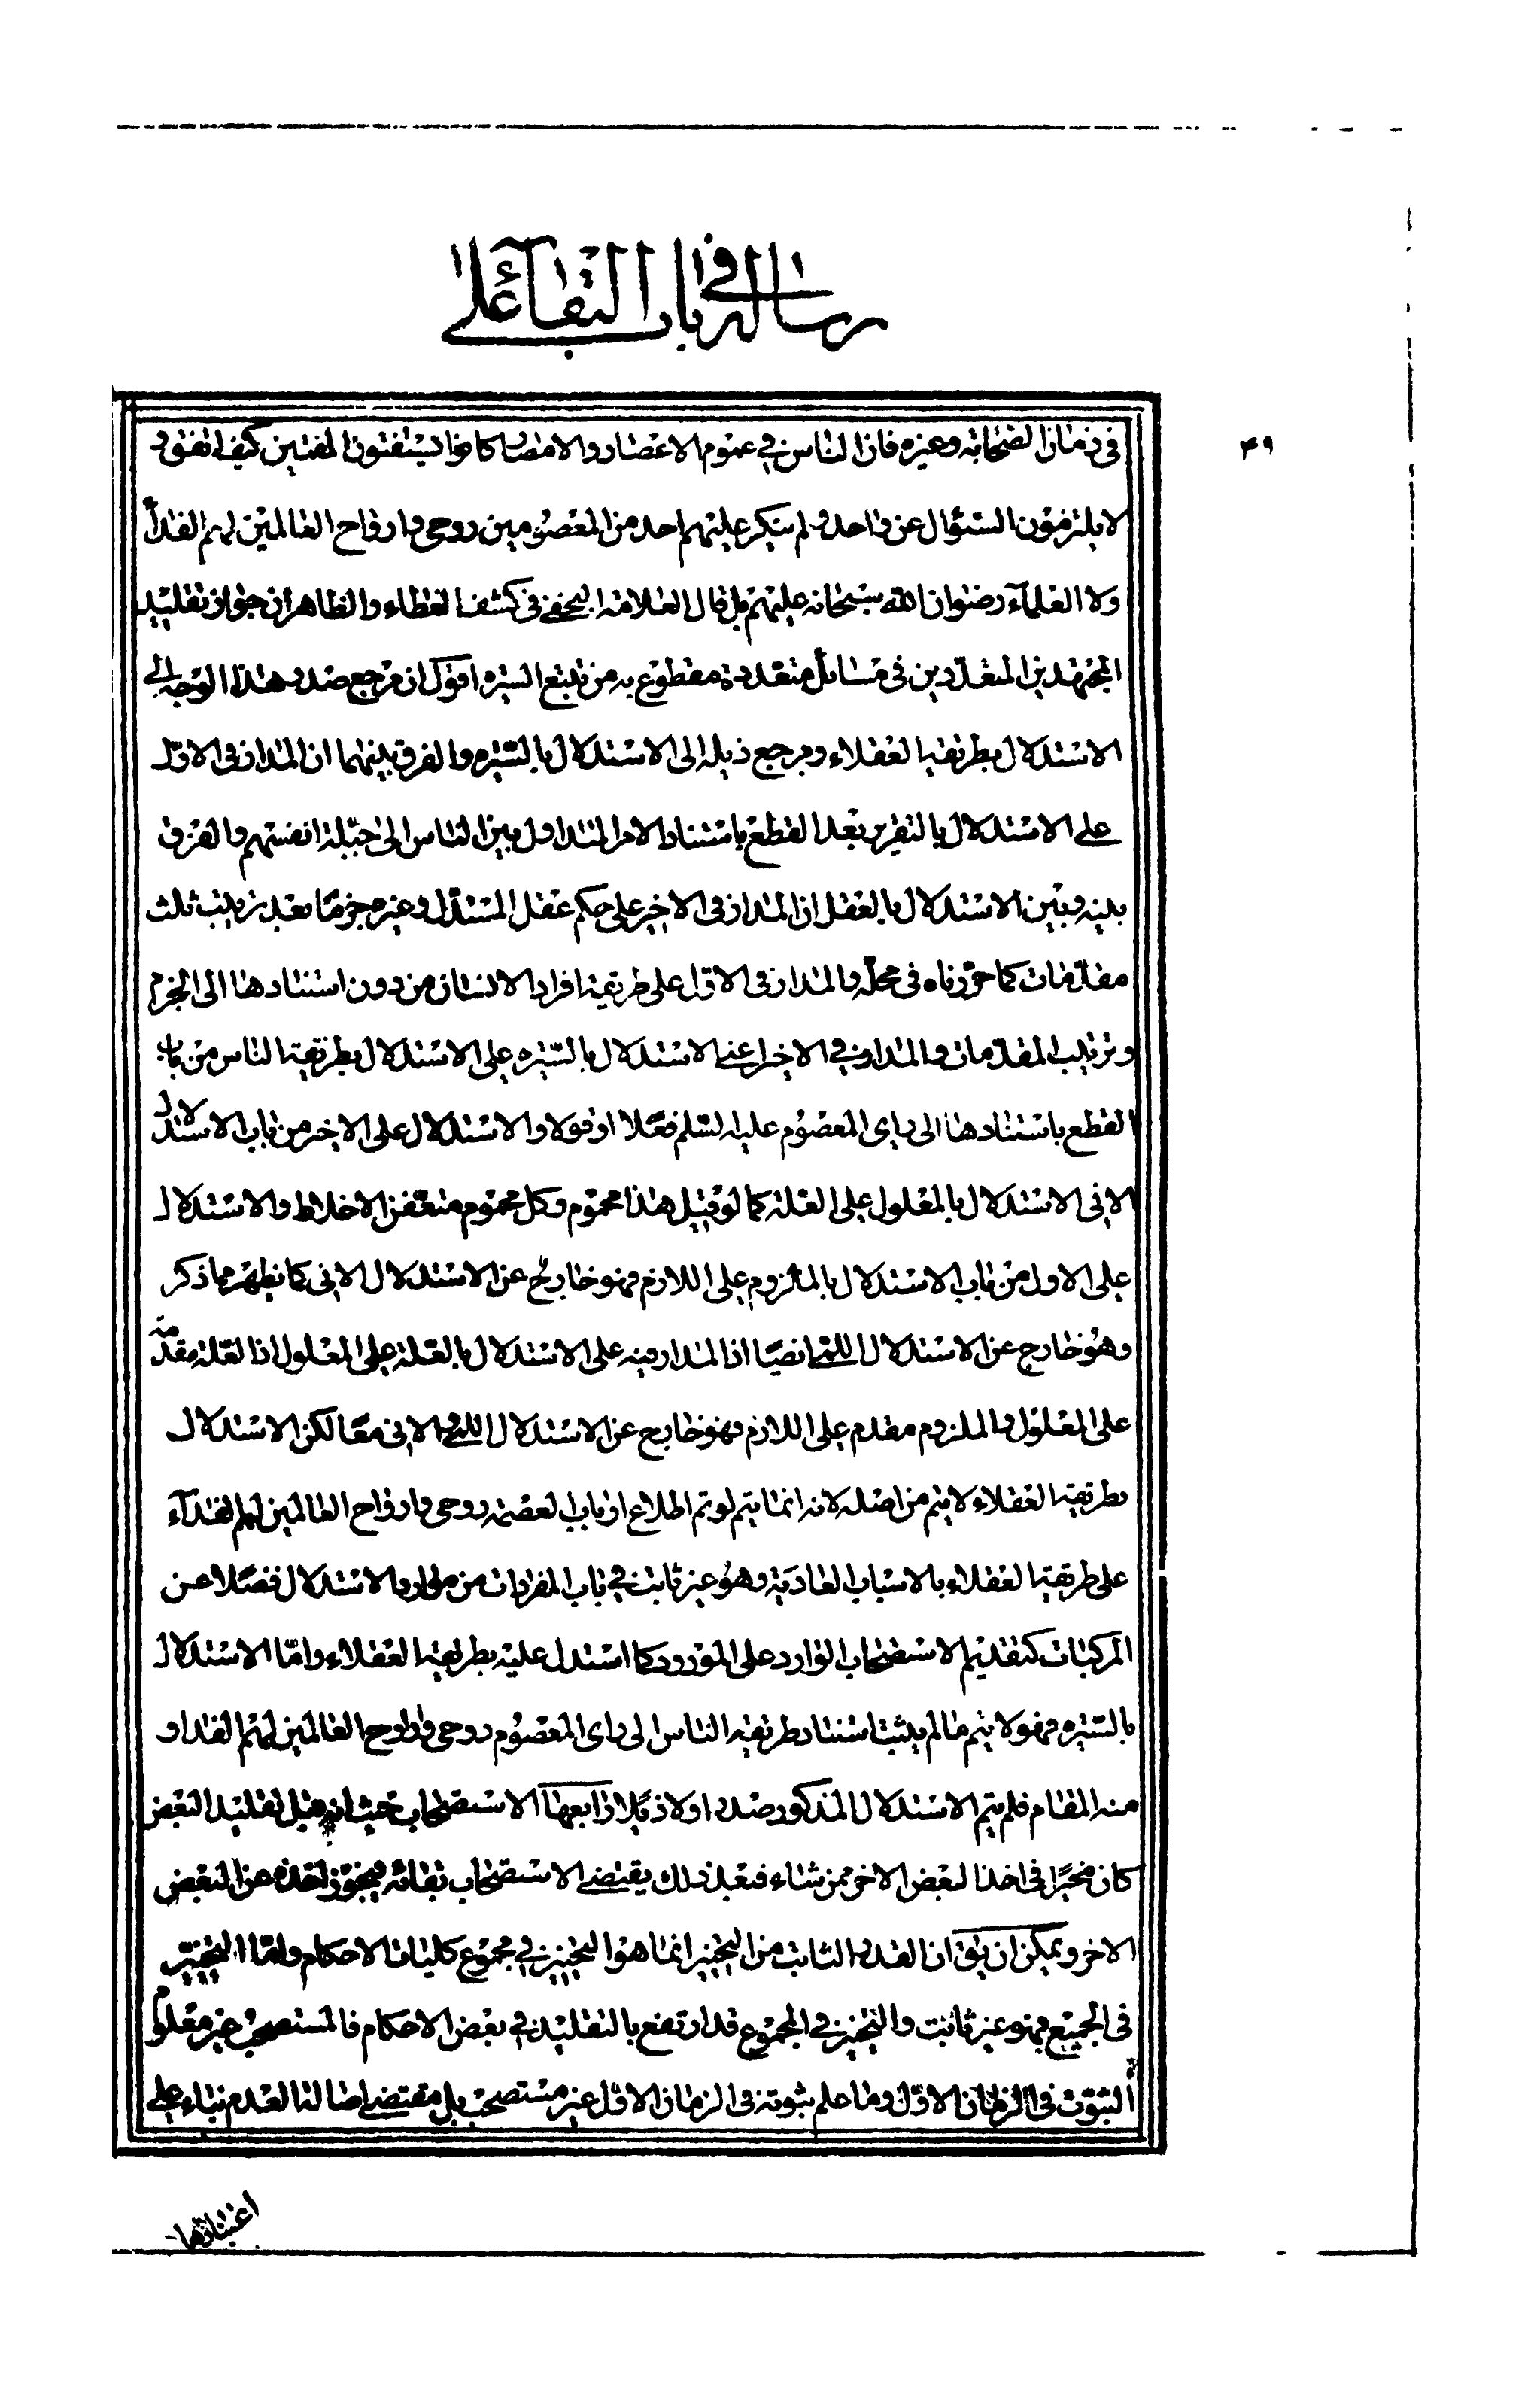 رسالة في باب البقاء على
۴۹
في زمان الصحابة وغيره فان الناس في عموم الاعصار والامصار كانوا يستفتون المفتين كيف اتفق و
لا يلتزمون السؤال عن واحد ولم ينكر عليهم احد من المعصومين روحي وارواح العالمين لهم الفداء
ولا العلمآء رضوان الله سبحانه عليهم بل قال العلامة النجفي في كشف الغطاء والظاهر ان جواز تقليد
المجتهدين المتعددين في مسائل متعددة مقطوع به من تتبع السيره اقول ان مرجع صدر هذا الوجه الى
الاستدلال بطريقة العقلاء ومرجع ذيله الى الاستدلال بالسيره والفرق بينهما ان المدار في الاول
على الاستدلال بالتقرير بعد القطع باستناد الامر المتداول بين الناس الى جبلة انفسهم والفرق
بينه وبين الاستدلال بالعقل ان المدار في الاخير على حكم عقل المستدل وغيره جزما بعد ترتيب ثلث
مقدمات كما حررناه في محله والمدار في الاول على طريقة افراد الانسان من دون استنادها الى الجزم
وترتيب المقدمات والمدار في الاخير اعني الاستدلال بالسيره على الاستدلال بطريقة الناس من باب
القطع باستنادها الى راى المعصوم عليه السلم فعلا او قولا والاستدلال على الاخير من باب الاستدلال
الاني الاستدلال بالمعلول على العلة كما لو قيل هذا محموم وكل محموم متعفن الاخلاط والاستدلال
على الاول من باب الاستدلال بالملزوم على اللازم فهو خارج عن الاستدلال الاني كما يظهر مما ذكر
وهو خارج عن الاستدلال اللمي ايضا اذ المدار فيه على الاستدلال بالعلة على المعلول اذ العلة مقدمة
على المعلول والملزوم مقدم على اللازم فهو خارج عن الاستدلال اللمي والاني معا لكن الاستدلال
بطريقة العقلاء لا يتم من اصله لانه انما يتم لو تم اطلاع ارباب العصمة روحي وارواح العالمين لهم الفدآء
على طريقة العقلاء بالاسباب العادية وهو غير ثابت في باب المفردات من موارد الاستدلال فضلا عن
المركبات كتقديم الاستصحاب الوارد على المورود كما استدل عليه بطريقة العقلاء واما الاستدلال
بالسيره فهو لا يتم ما لم يثبت استناد طريقة الناس الى راى المعصوم روحي وارواح العالمين لهم الفداء و
منه المقام فلم يتم الاستدلال المذكور صدرا ولا ذيلا رابعها الاستصحاب حيث انه قبل تقليد البعض
كان مخيرا في اخذ البعض الاخر ممن شاء فبعد ذلك يقتضي الاستصحاب بقائه فيجوز اخذه عن البعض
الاخر ويمكن ان يق ان القدر الثابت من التخيير انما هو التخيير في مجموع كليات الاحكام واما التخيير
في الجميع فهو غير ثابت والتخيير في المجموع قد ارتفع بالتقليد في بعض الاحكام فالمستصحب غير معلوم
الثبوت في الزمان الاول وما علم ثبوته في الزمان الاول غير مستصحب بل مقتضى اصالة العدم بناء على
اعتبارها